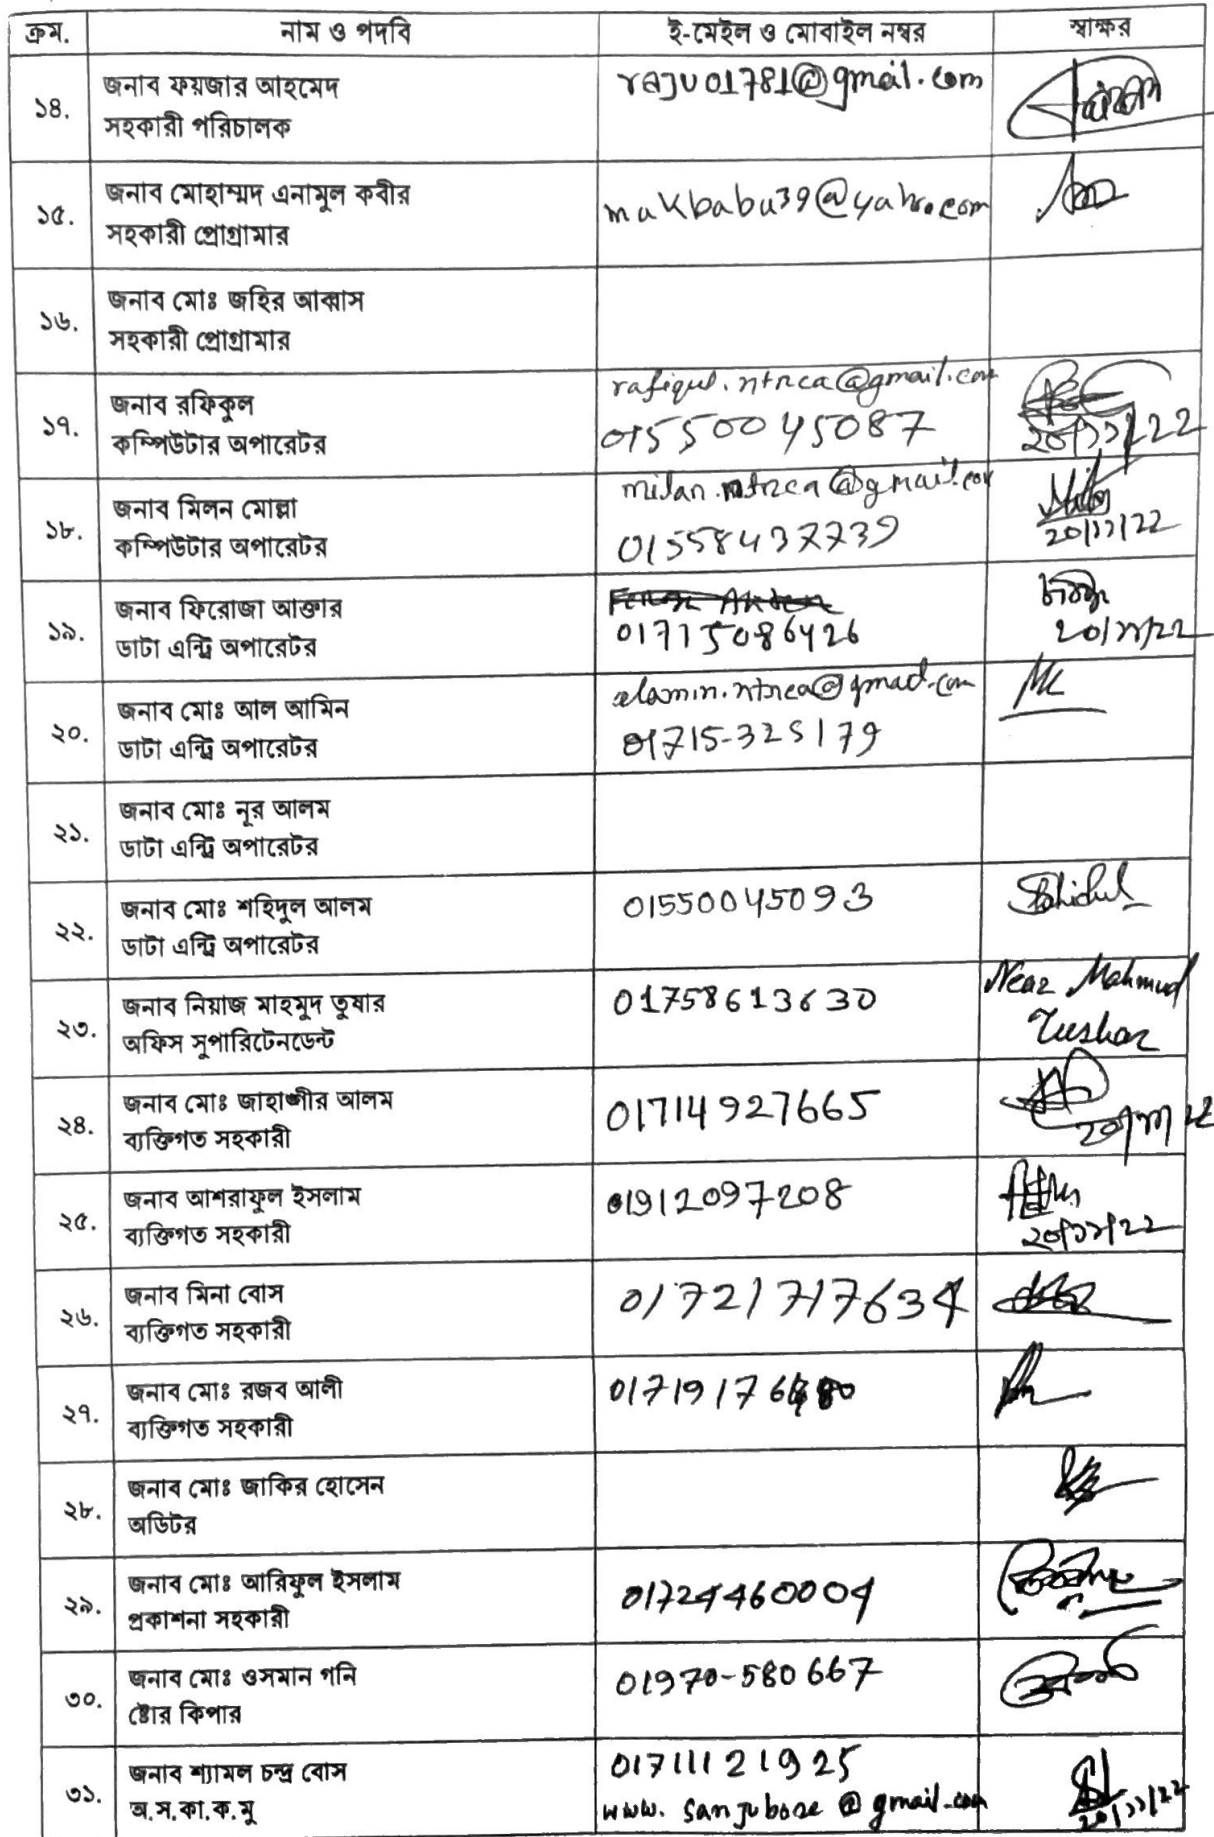 ক্রম. নাম ও পদবি ই-মেইল ও মোবাইল নম্বর স্বাক্ষর
১৪. জনাব ফয়জার আহমেদ
সহকারী পরিচালক
raju01781@gmail.com
১৫. জনাব মোহাম্মদ এনামুল কবীর
সহকারী প্রোগ্রামার
makbabu39@yahoo.com
১৬. জনাব মোঃ জহির আব্বাস
সহকারী প্রোগ্রামার
১৭. জনাব রফিকুল
কম্পিউটার অপারেটর
rafiqul.ntrca@gmail.com
01550045087
20/11/22
১৮. জনাব মিলন মোল্লা
কম্পিউটার অপারেটর
milan.ntrca@gmail.com
20/11/22
১৯. জনাব ফিরোজা আক্তার
ডাটা এন্ট্রি অপারেটর
01715086426
20/11/22
২০. জনাব মোঃ আল আমিন
ডাটা এন্ট্রি অপারেটর
alamin.ntrca@gmail.com
01715-325179
২১. জনাব মোঃ নূর আলম
ডাটা এন্ট্রি অপারেটর
২২. জনাব মোঃ শহিদুল আলম
ডাটা এন্ট্রি অপারেটর
01550045093
Shahidul
২৩. জনাব নিয়াজ মাহমুদ তুষার
অফিস সুপারিটেনডেন্ট
01758613630
Neaz Mahmud
Tushar
২৪. জনাব মোঃ জাহাঙ্গীর আলম
ব্যক্তিগত সহকারী
01714927665
20/11/22
২৫. জনাব আশরাফুল ইসলাম
ব্যক্তিগত সহকারী
01912097208
20/11/22
২৬. জনাব মিনা বোস
ব্যক্তিগত সহকারী
01721717634
২৭. জনাব মোঃ রজব আলী
ব্যক্তিগত সহকারী
২৮. জনাব মোঃ জাকির হোসেন
অডিটর
২৯. জনাব মোঃ আরিফুল ইসলাম
প্রকাশনা সহকারী
01724460004
৩০. জনাব মোঃ ওসমান গনি
ষ্টোর কিপার
01970-580667
৩১. জনাব শ্যামল চন্দ্র বোস
অ.স.কা.ক.মু
01711121925
www. sanjubose@gmail.com
20/11/22